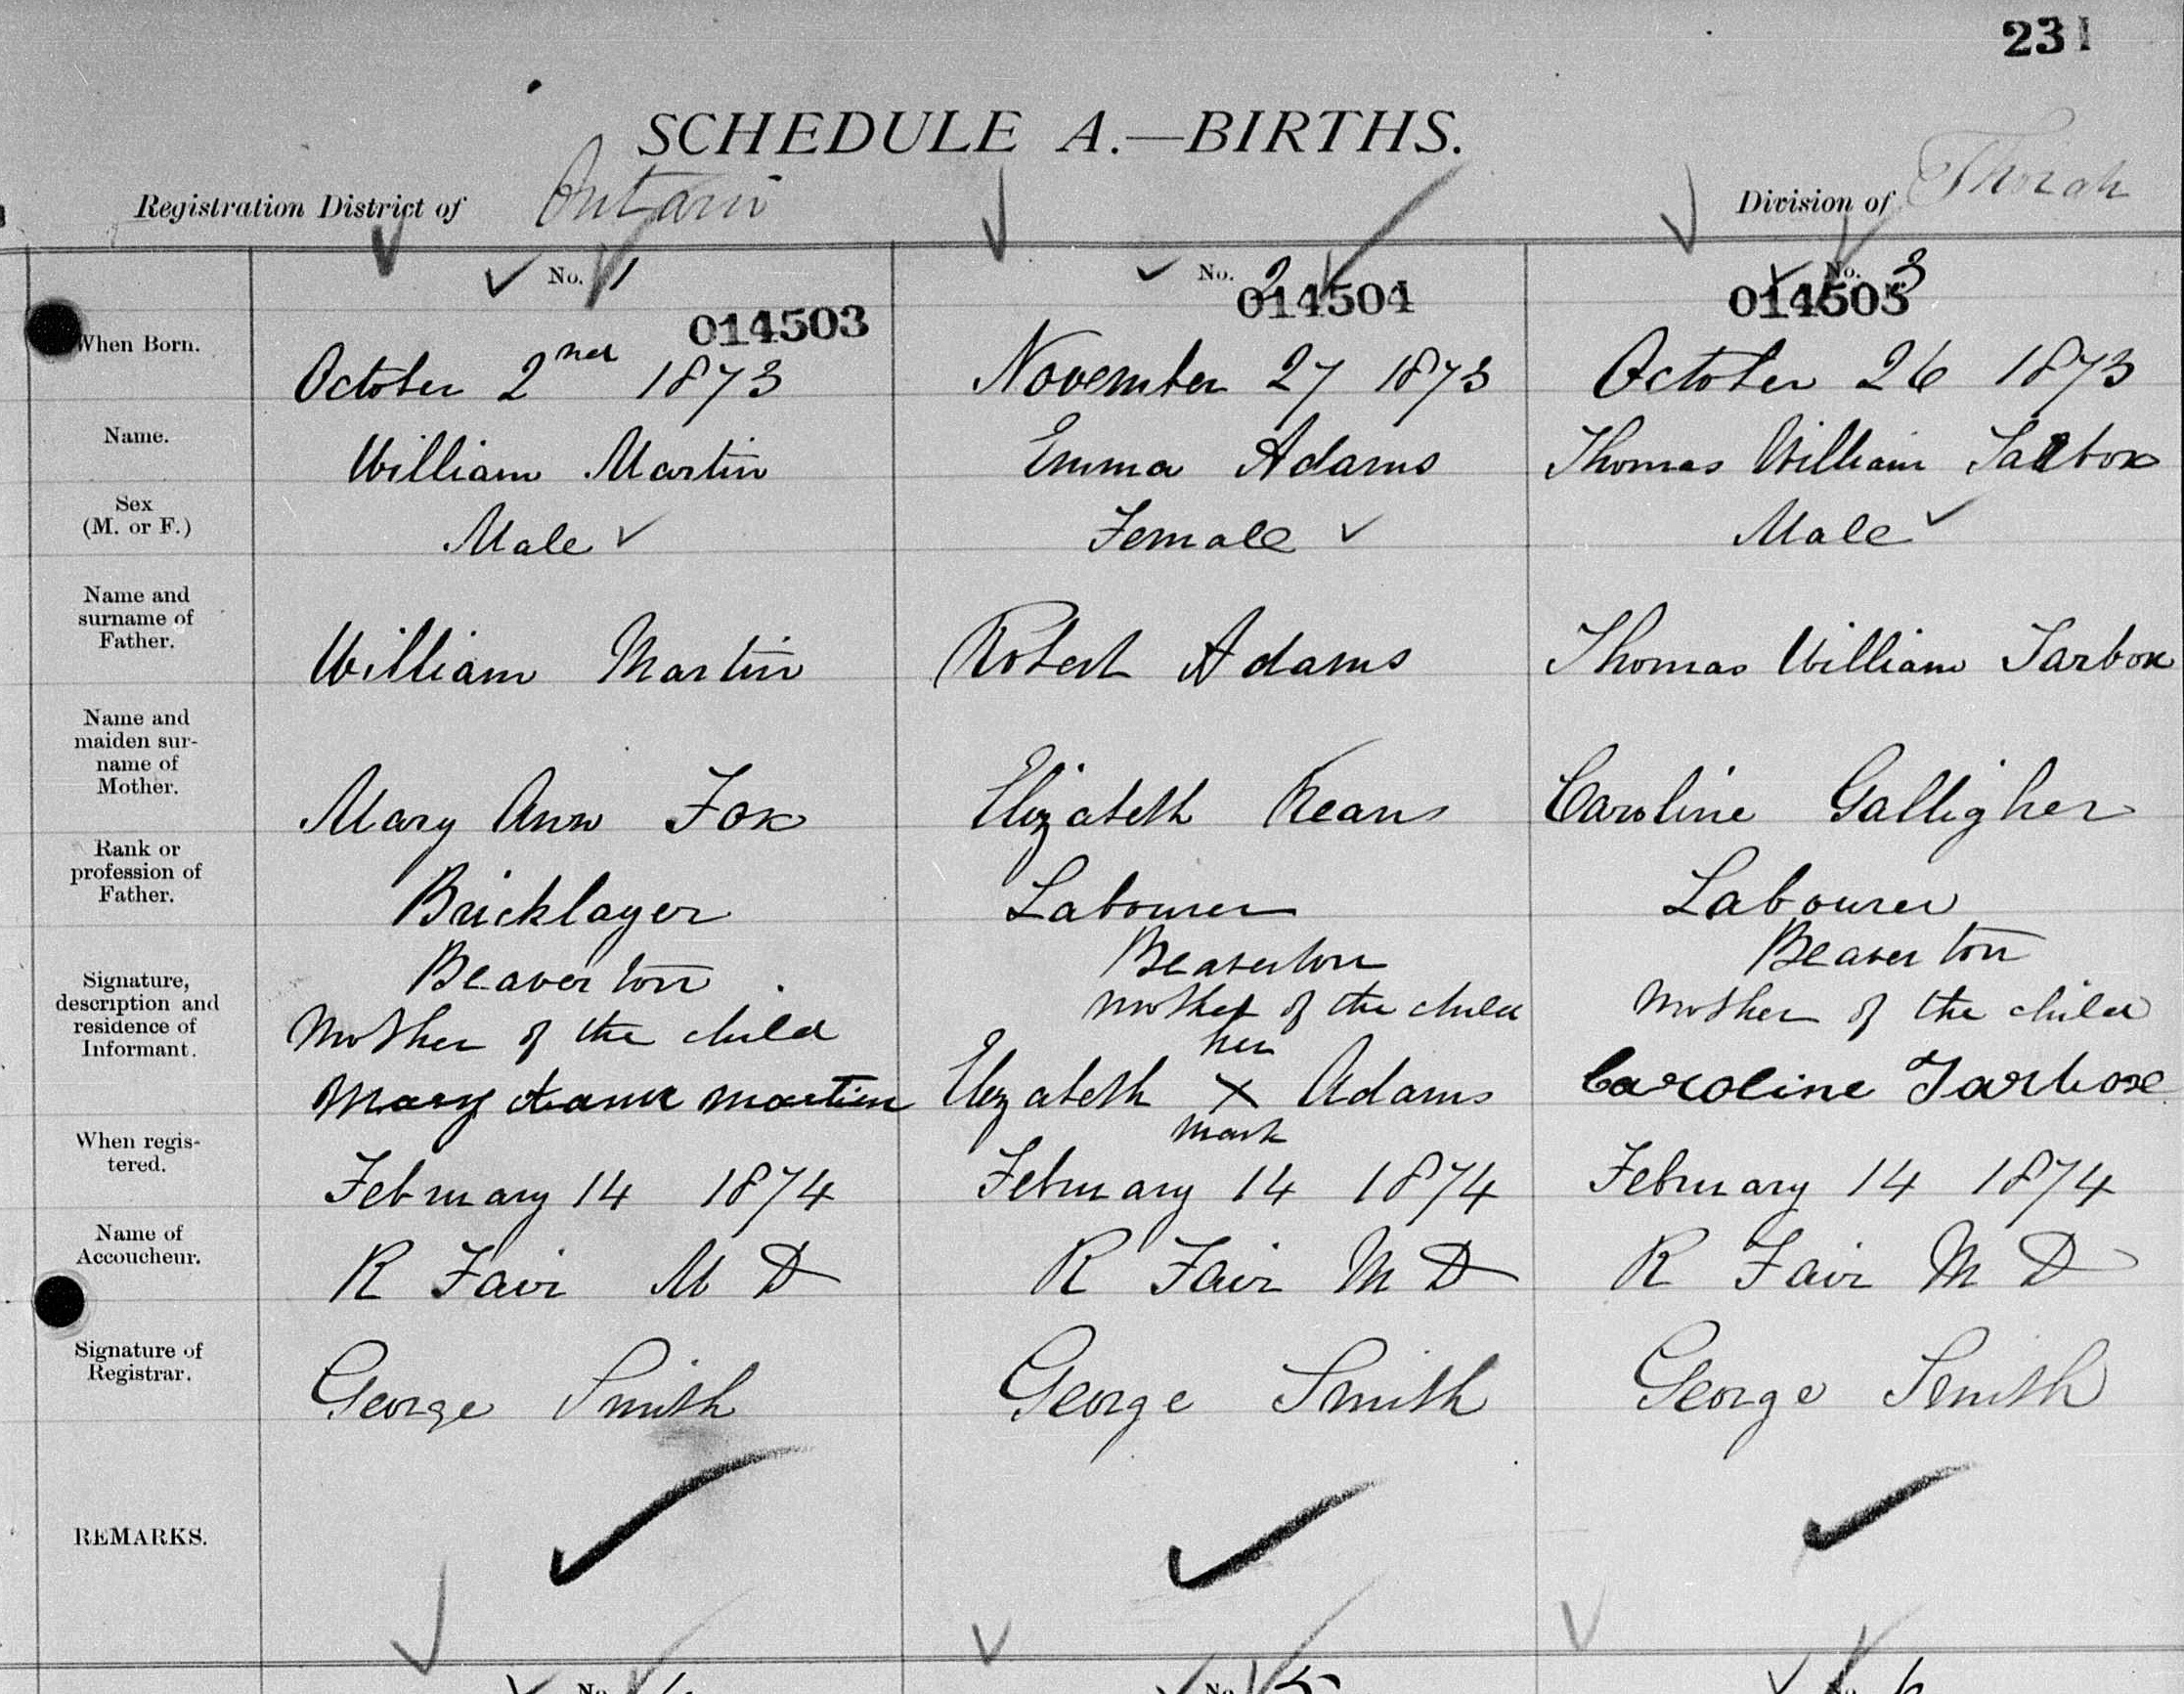 231
SCHEDULE A.—BIRTHS.
Registration District of Ontario Division of Thorah
No. 1 No. 2 No. 3
014503 014504 014505
When Born. October 2nd 1873 November 27 1873 October 26 1873
Name. William Martin Emma Adams Thomas William Tarbox
Sex
(M. or F.) Male Female Male
Name and
surname of
Father. William Martin Robert Adams Thomas William Tarbox
Name and
maiden sur-
name of
Mother. Mary Ann Fox Elizabeth Keans Caroline Galligher
Rank or
profession of
Father. Bricklayer Labourer Labourer
Signature,
description and
residence of
Informant.
Beaverton Beaverton Beaverton
Mother of the child Mother of the child Mother of the child
her
Mary Martin Elizabeth X Adams Caroline Tarbox
mark
When regis-
tered. February 14 1874 February 14 1874 February 14 1874
Name of
Accoucheur. R Fair M D R Fair M D R Fair M D
Signature of
Registrar. George Smith George Smith George Smith
REMARKS.
No. No. 5 No. 6